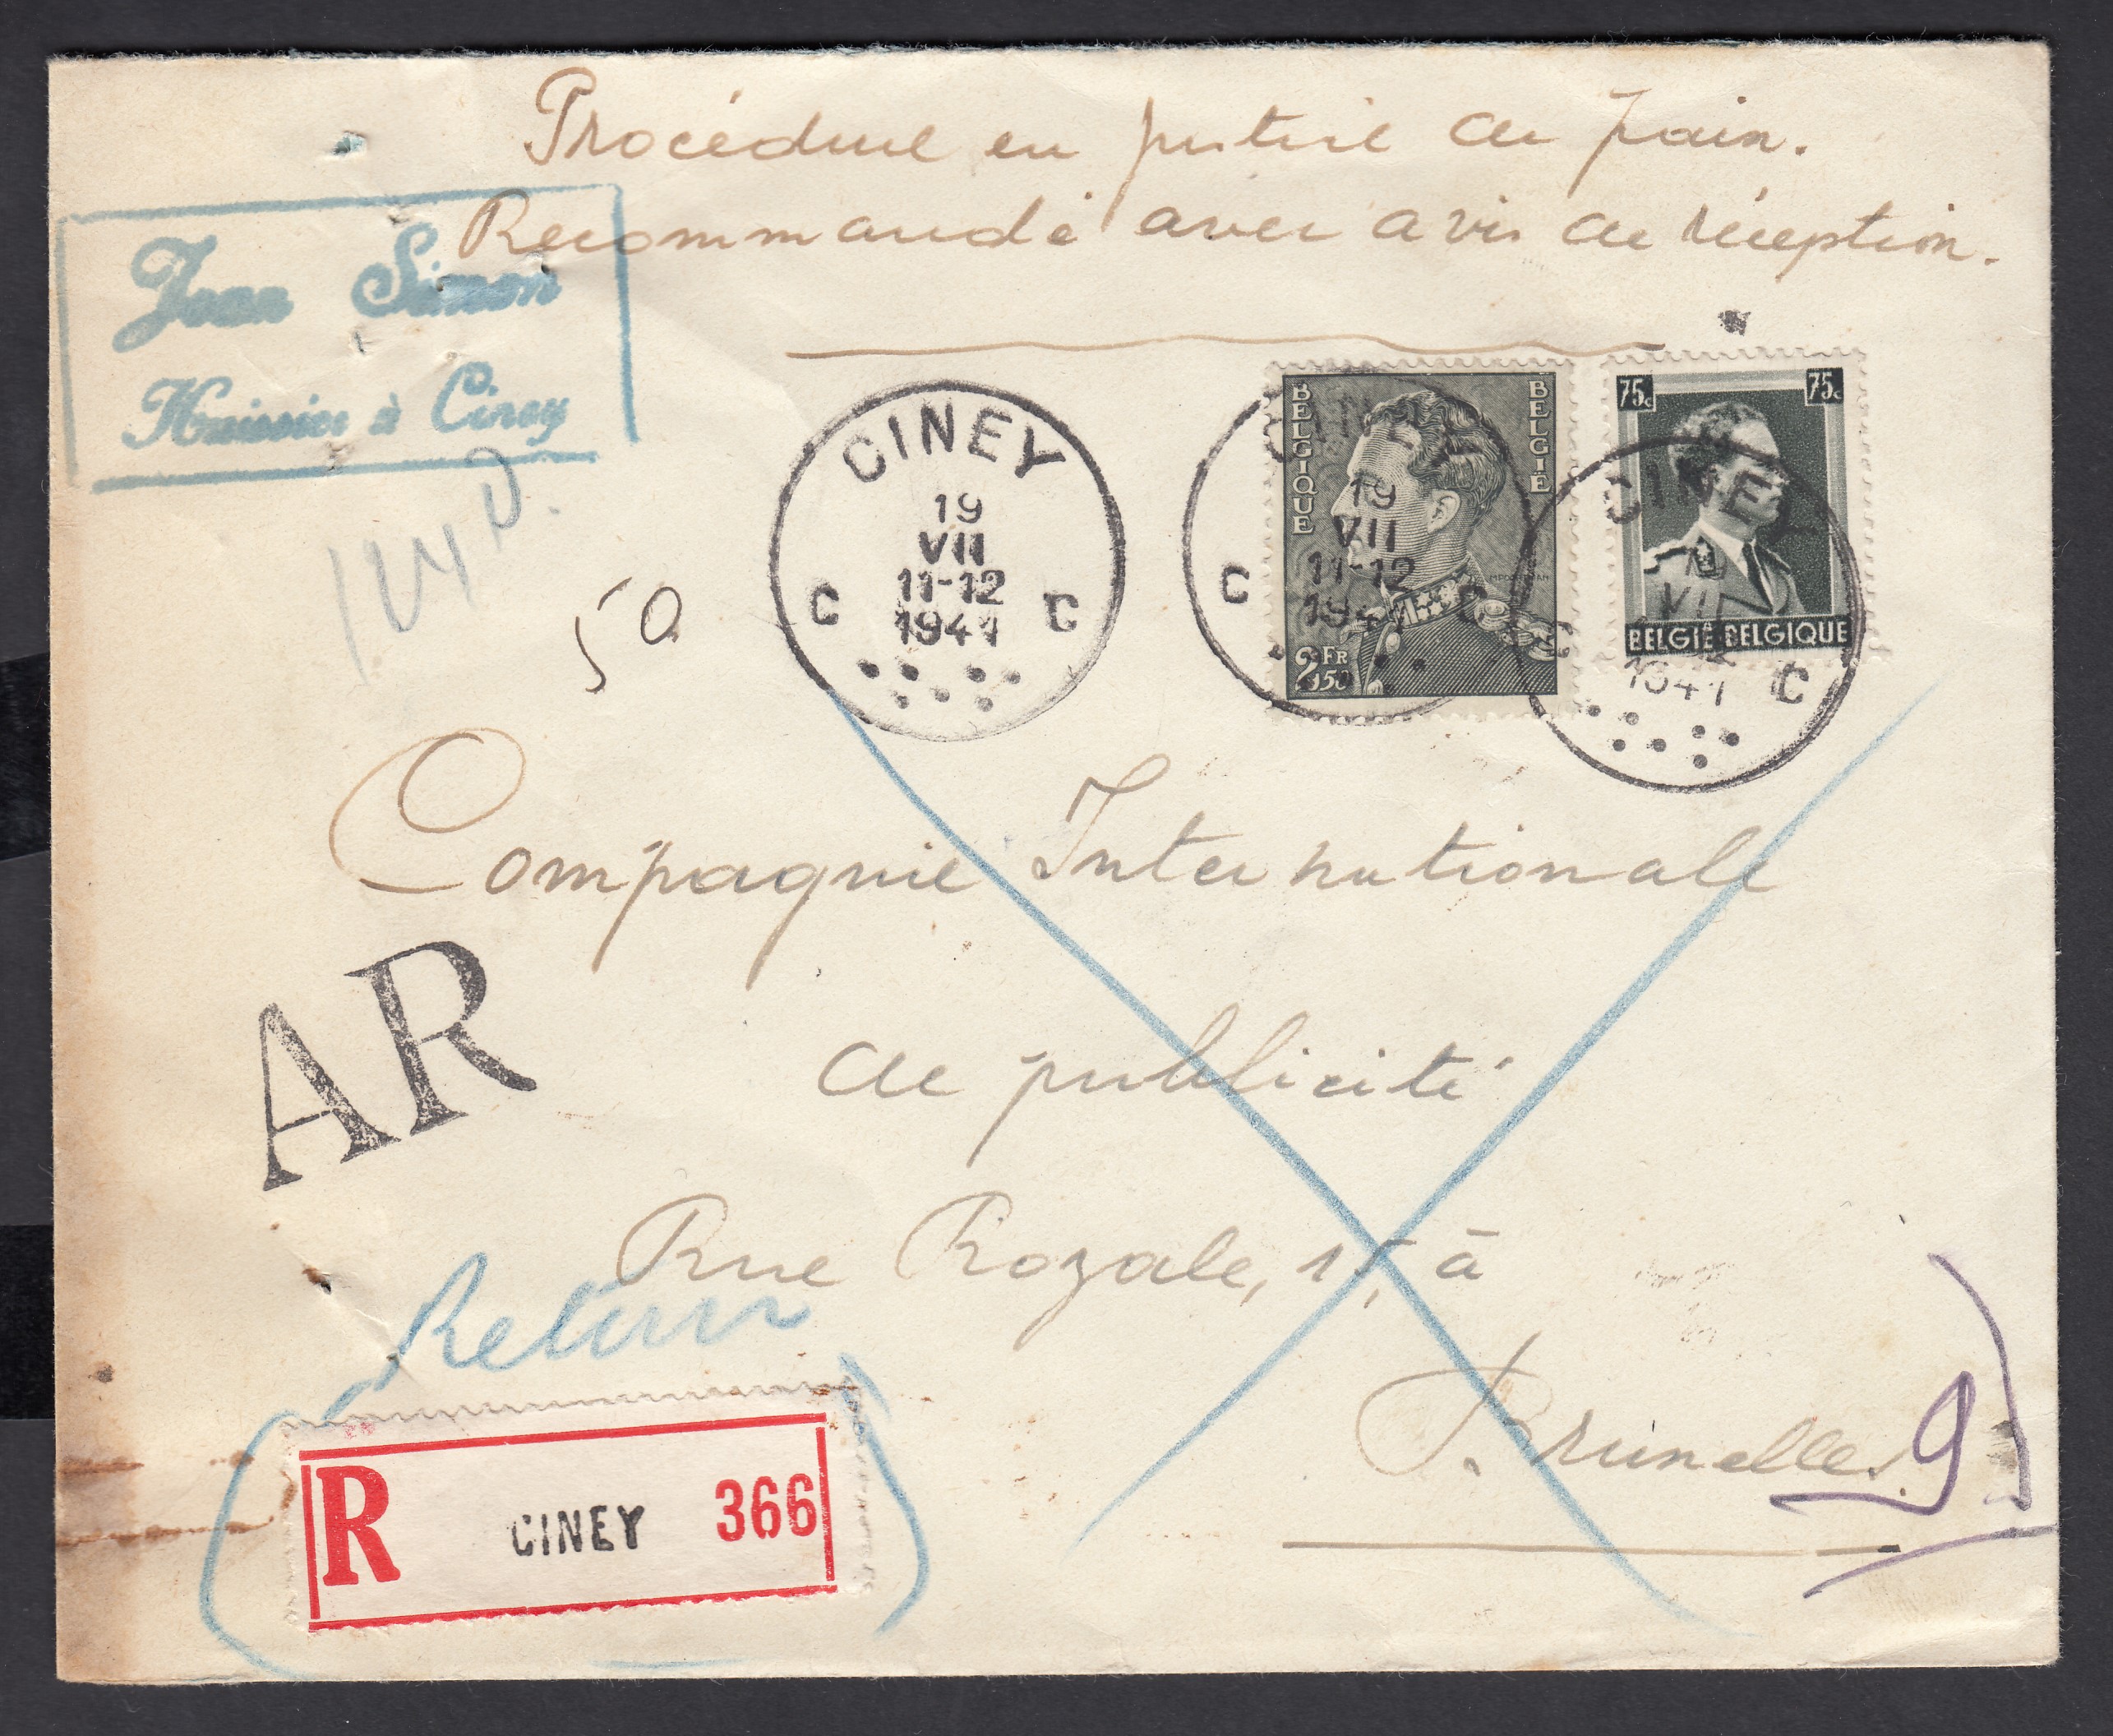 Procédure en justice de paix.
Recommandé avec avis de réception.
Jean Simon
Huissier à Ciney
50
CINEY
19
VII
11-12
1941
C C
BELGIQUE
BELGIË
2FR50
CINEY
19
VII
11-12
1941
C C
75c 75c
BELGIË BELGIQUE
CINEY
VII
1941
C
Compagnie Internationale
de publicité
AR
Rue Royale, 15, à
Bruxelles.
Retour
9
R CINEY 366